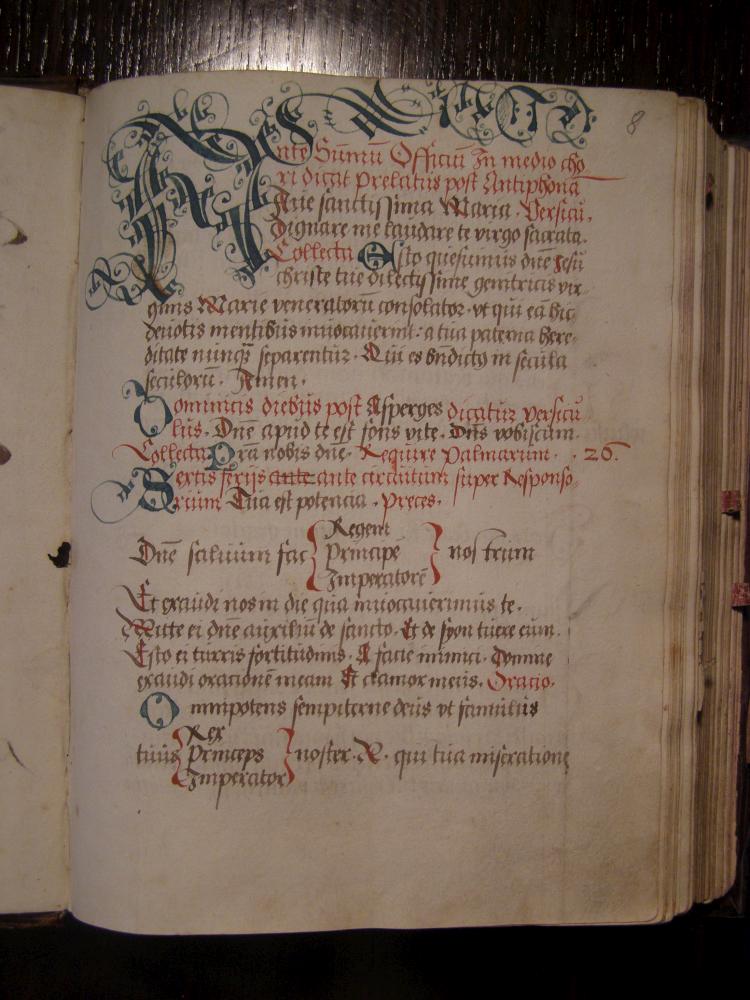 8
nte Sūmū Officiū In medio cho
ri dicat Prelatus post Antiphonā
Aue sanctissima Maria. Versicu.
Dignare me laudare te virgo sacrata.
Collecta Esto quesumus dne Jesu
christe tue dilectissime genitricis vir
ginis Marie veneratorū consolator. vt qui eā hic
deuotis mentibus inuocauerint. a tua paterna here
ditate nunqꝫ separentur. Qui es bndictꝯ in secula
seculorū. Amen.
Dominicis diebus post Asperges dicatur versicu
lus. Dne apud te est fons vite. Dns vobiscum.
Collecta Exa nobis dne. Require Palmarum. 26.
Sextis ferijs ante ante circuitum super Responso
rium Tua est potencia. Preces.
Dne saluum fac
Regem
Principē
Imperatorē
nostrum
Et exaudi nos in die qua inuocauerimus te.
Mitte ei dne auxiliū de sancto. Et de syon tuere eum.
Esto ei turris fortitudinis. A facie inimici. Domine
exaudi orationē meam Et clamor meus. Oracio.
Omnipotens sempiterne deus vt famulus
tuus
Rex
Princeps
Imperator
noster. N. qui tua miseratione